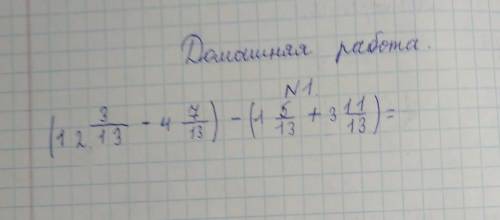 Домашняя работа.
N1.
(12 3/13 - 4 7/13) - (1 5/13 + 3 11/13) =